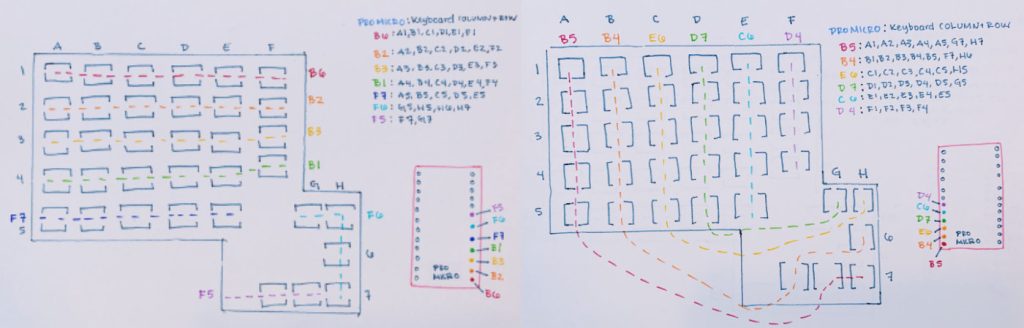 PRO MICRO: Keyboard COLUMN+ROW
B6: A1, B1, C1, D1, E1, F1
B2: A2, B2, C2, D2, E2, F2
B3: A3, B3, C3, D3, E3, F3
B1: A4, B4, C4, D4, E4, F4
F7: A5, B5, C5, D5, E5
F6: G5, H5, H6, H7
F5: F7, G7
A B C D E F
1 B6
2 B2
3 B3
4 B1
G H
F7 5 F6
6
F5 7
F5
F6
F7
B1
B3
B2
B6
PRO MICRO
PRO MICRO: Keyboard COLUMN+ROW
B5: A1, A2, A3, A4, A5, G7, H7
B4: B1, B2, B3, B4, B5, F7, H6
E6: C1, C2, C3, C4, C5, H5
D7: D1, D2, D3, D4, D5, G5
C6: E1, E2, E3, E4, E5
D4: F1, F2, F3, F4
A B C D E F
B5 B4 E6 D7 C6 D4
1
2
3
4
G H
5
6
7
D4
C6
D7
E6
B4
B5
PRO MICRO